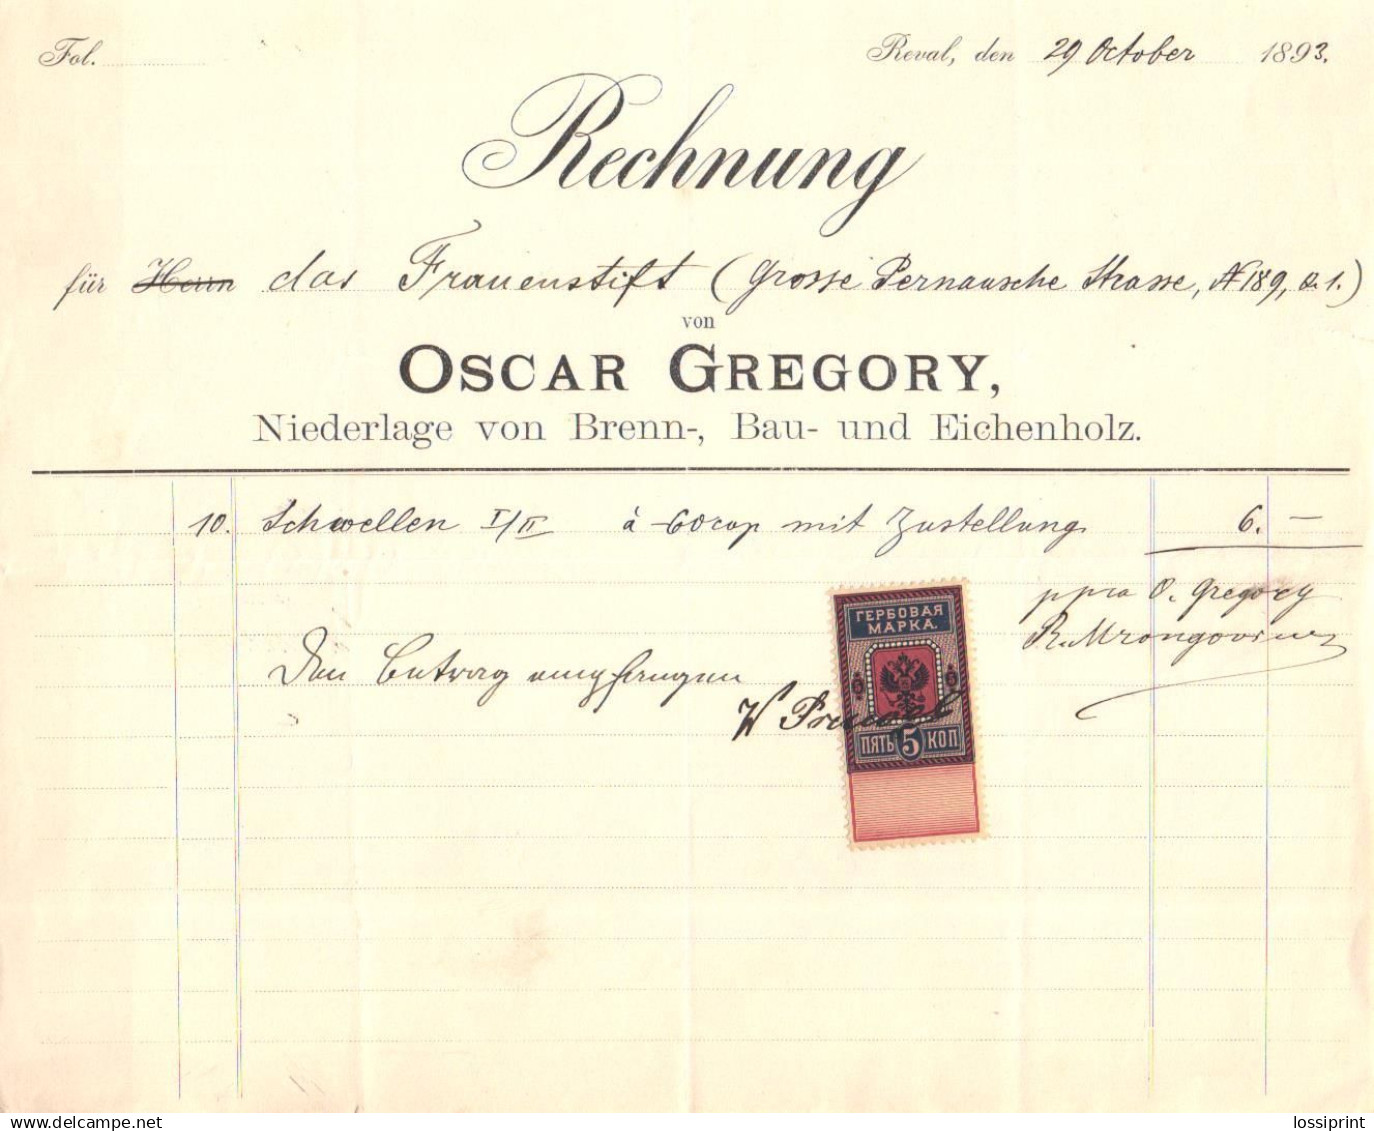 Fol.
Reval, den 29 October 1893.
Rechnung
für Herrn das Frauenstift (Grosse Pernausche Strasse, № 189, Q. 1.)
von
OSCAR GREGORY,
Niederlage von Brenn-, Bau- und Eichenholz.
10. Schwellen I/II à 60 cop mit Zustellung 6. —
ppra O. Gregory
R. Mrongovius
ГЕРБОВАЯ
МАРКА.
Den Betrag empfangen
W
5 5
ПЯТЬ 5 КОП
lossiprint